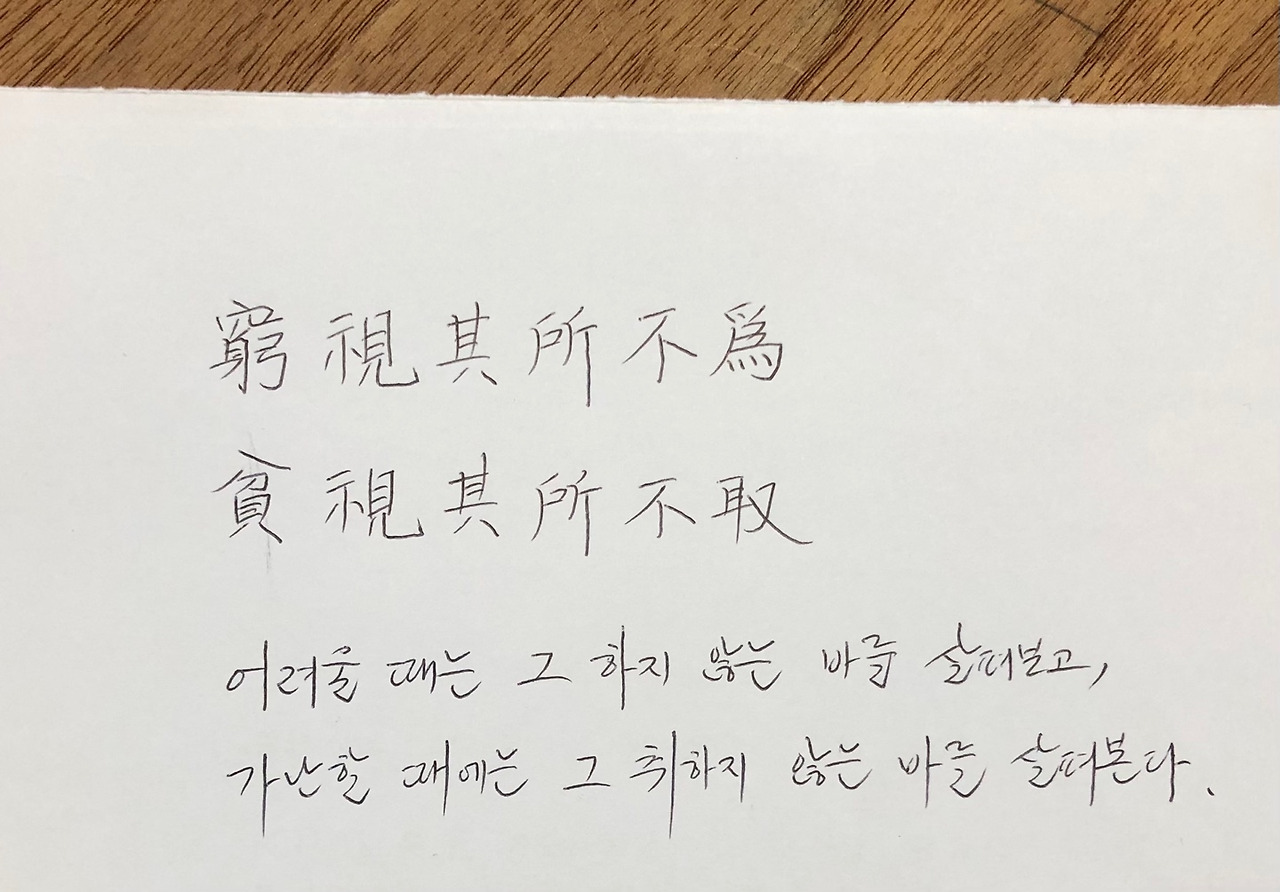 窮視其所不爲
貧視其所不取
어려울 때는 그 하지 않는 바를 살펴보고,
가난할 때에는 그 취하지 않는 바를 살펴본다.